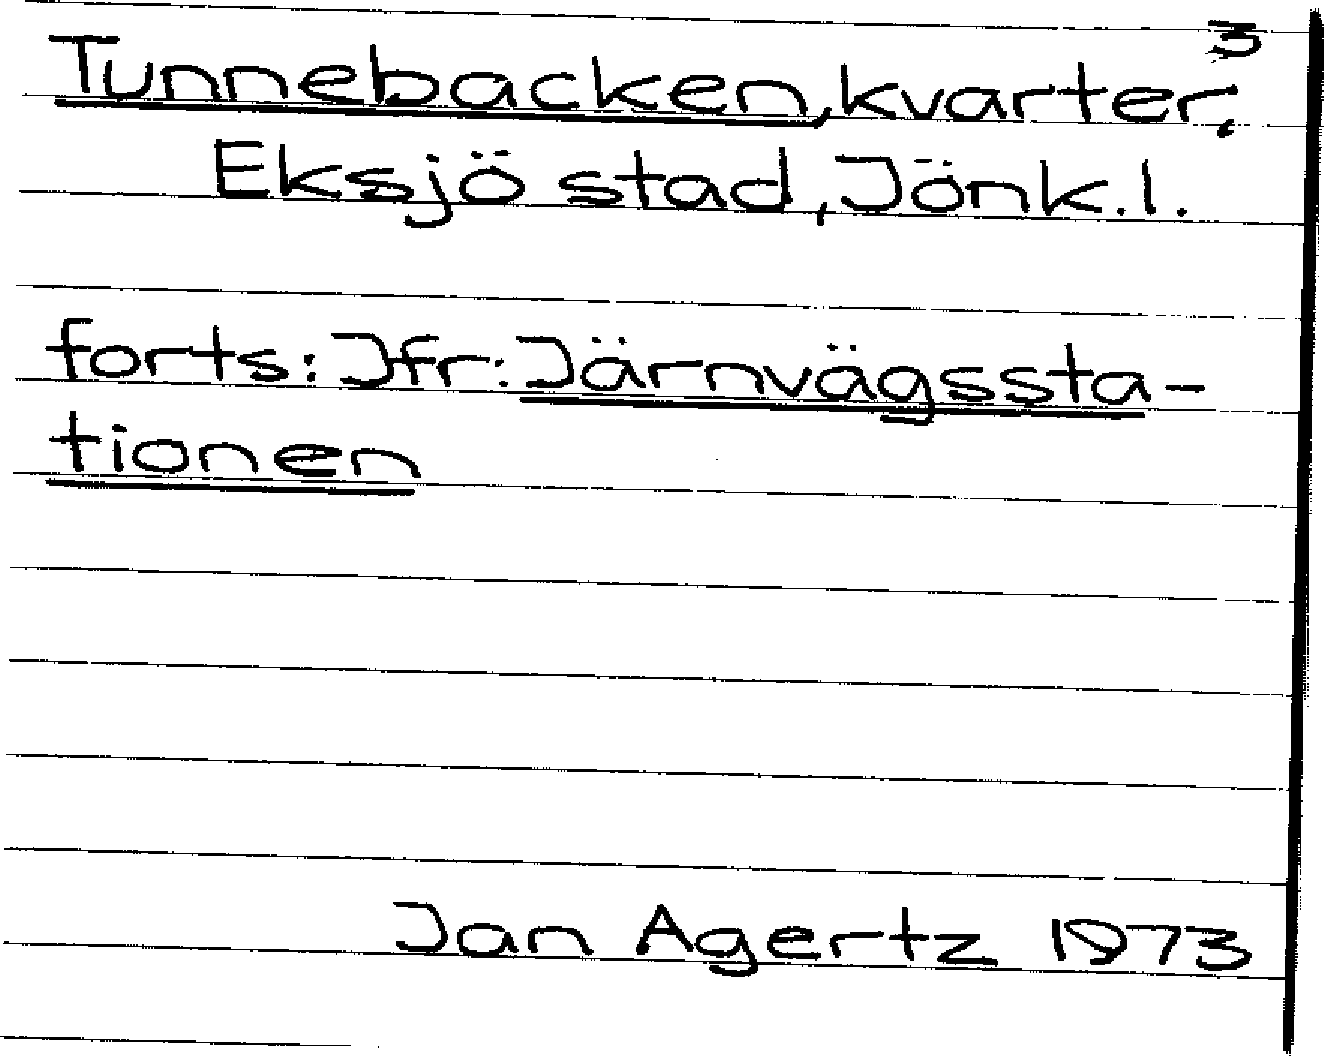 3
Tunnebacken, kvarter.
Eksjö stad, Jönk.l.
forts: Jfr: Järnvägssta-
tionen
Jan Agertz 1973